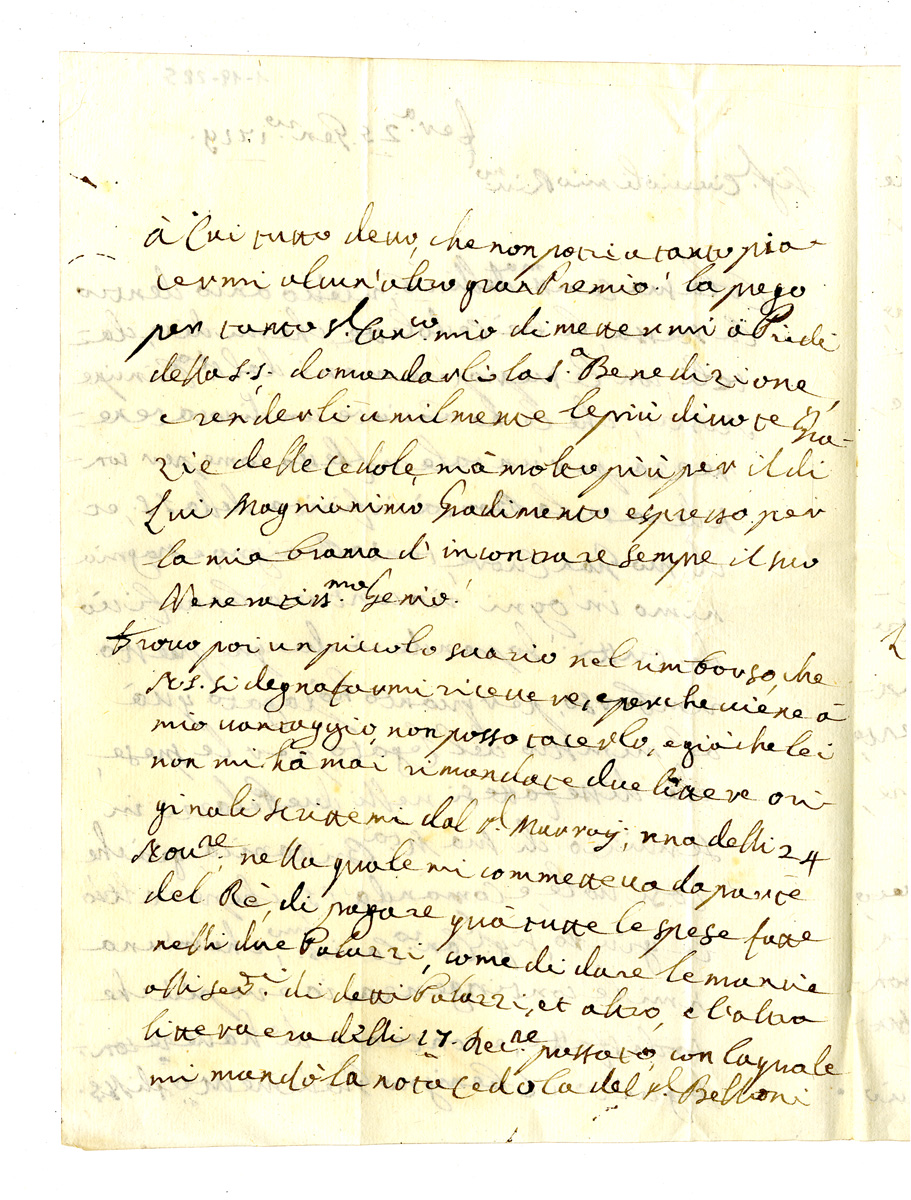 à Cui tutto devo, che non potria tanto pia-
cermi alcun' altro gran Premio! la prego
per tanto sr. Canco. mio di mettermi à Piedi
della S. S. domandarli la Sa. Benedizione,
e renderli umilmente le più divote Gra-
zie delle cedole, mà molto più per il di
Lui Magnianimo Gradimento espresso per
la mia brama d' incontrare sempre il suo
Veneratissmo. Genio!
trovo poi un piccolo svario nel rimborso, che
N. S. si degna farmi ricevere, e perche viene à
mio vantaggio, non posso tacerlo, e già che lei
non mi hà mai rimandate due littere ori-
ginali scrittemi dal sr. Murray; una delli 24
Novre. nella quale mi commetteva da parte
del Rè, di pagare quà tutte le spese fatte
nelli due Palazzi, come di dare le mancie
alli serri. di detti Palazzi, et altro, e l'altra
littera era delli 17. Decre. passato, con la quale
mi mandò la nota cedola del sr. Belloni